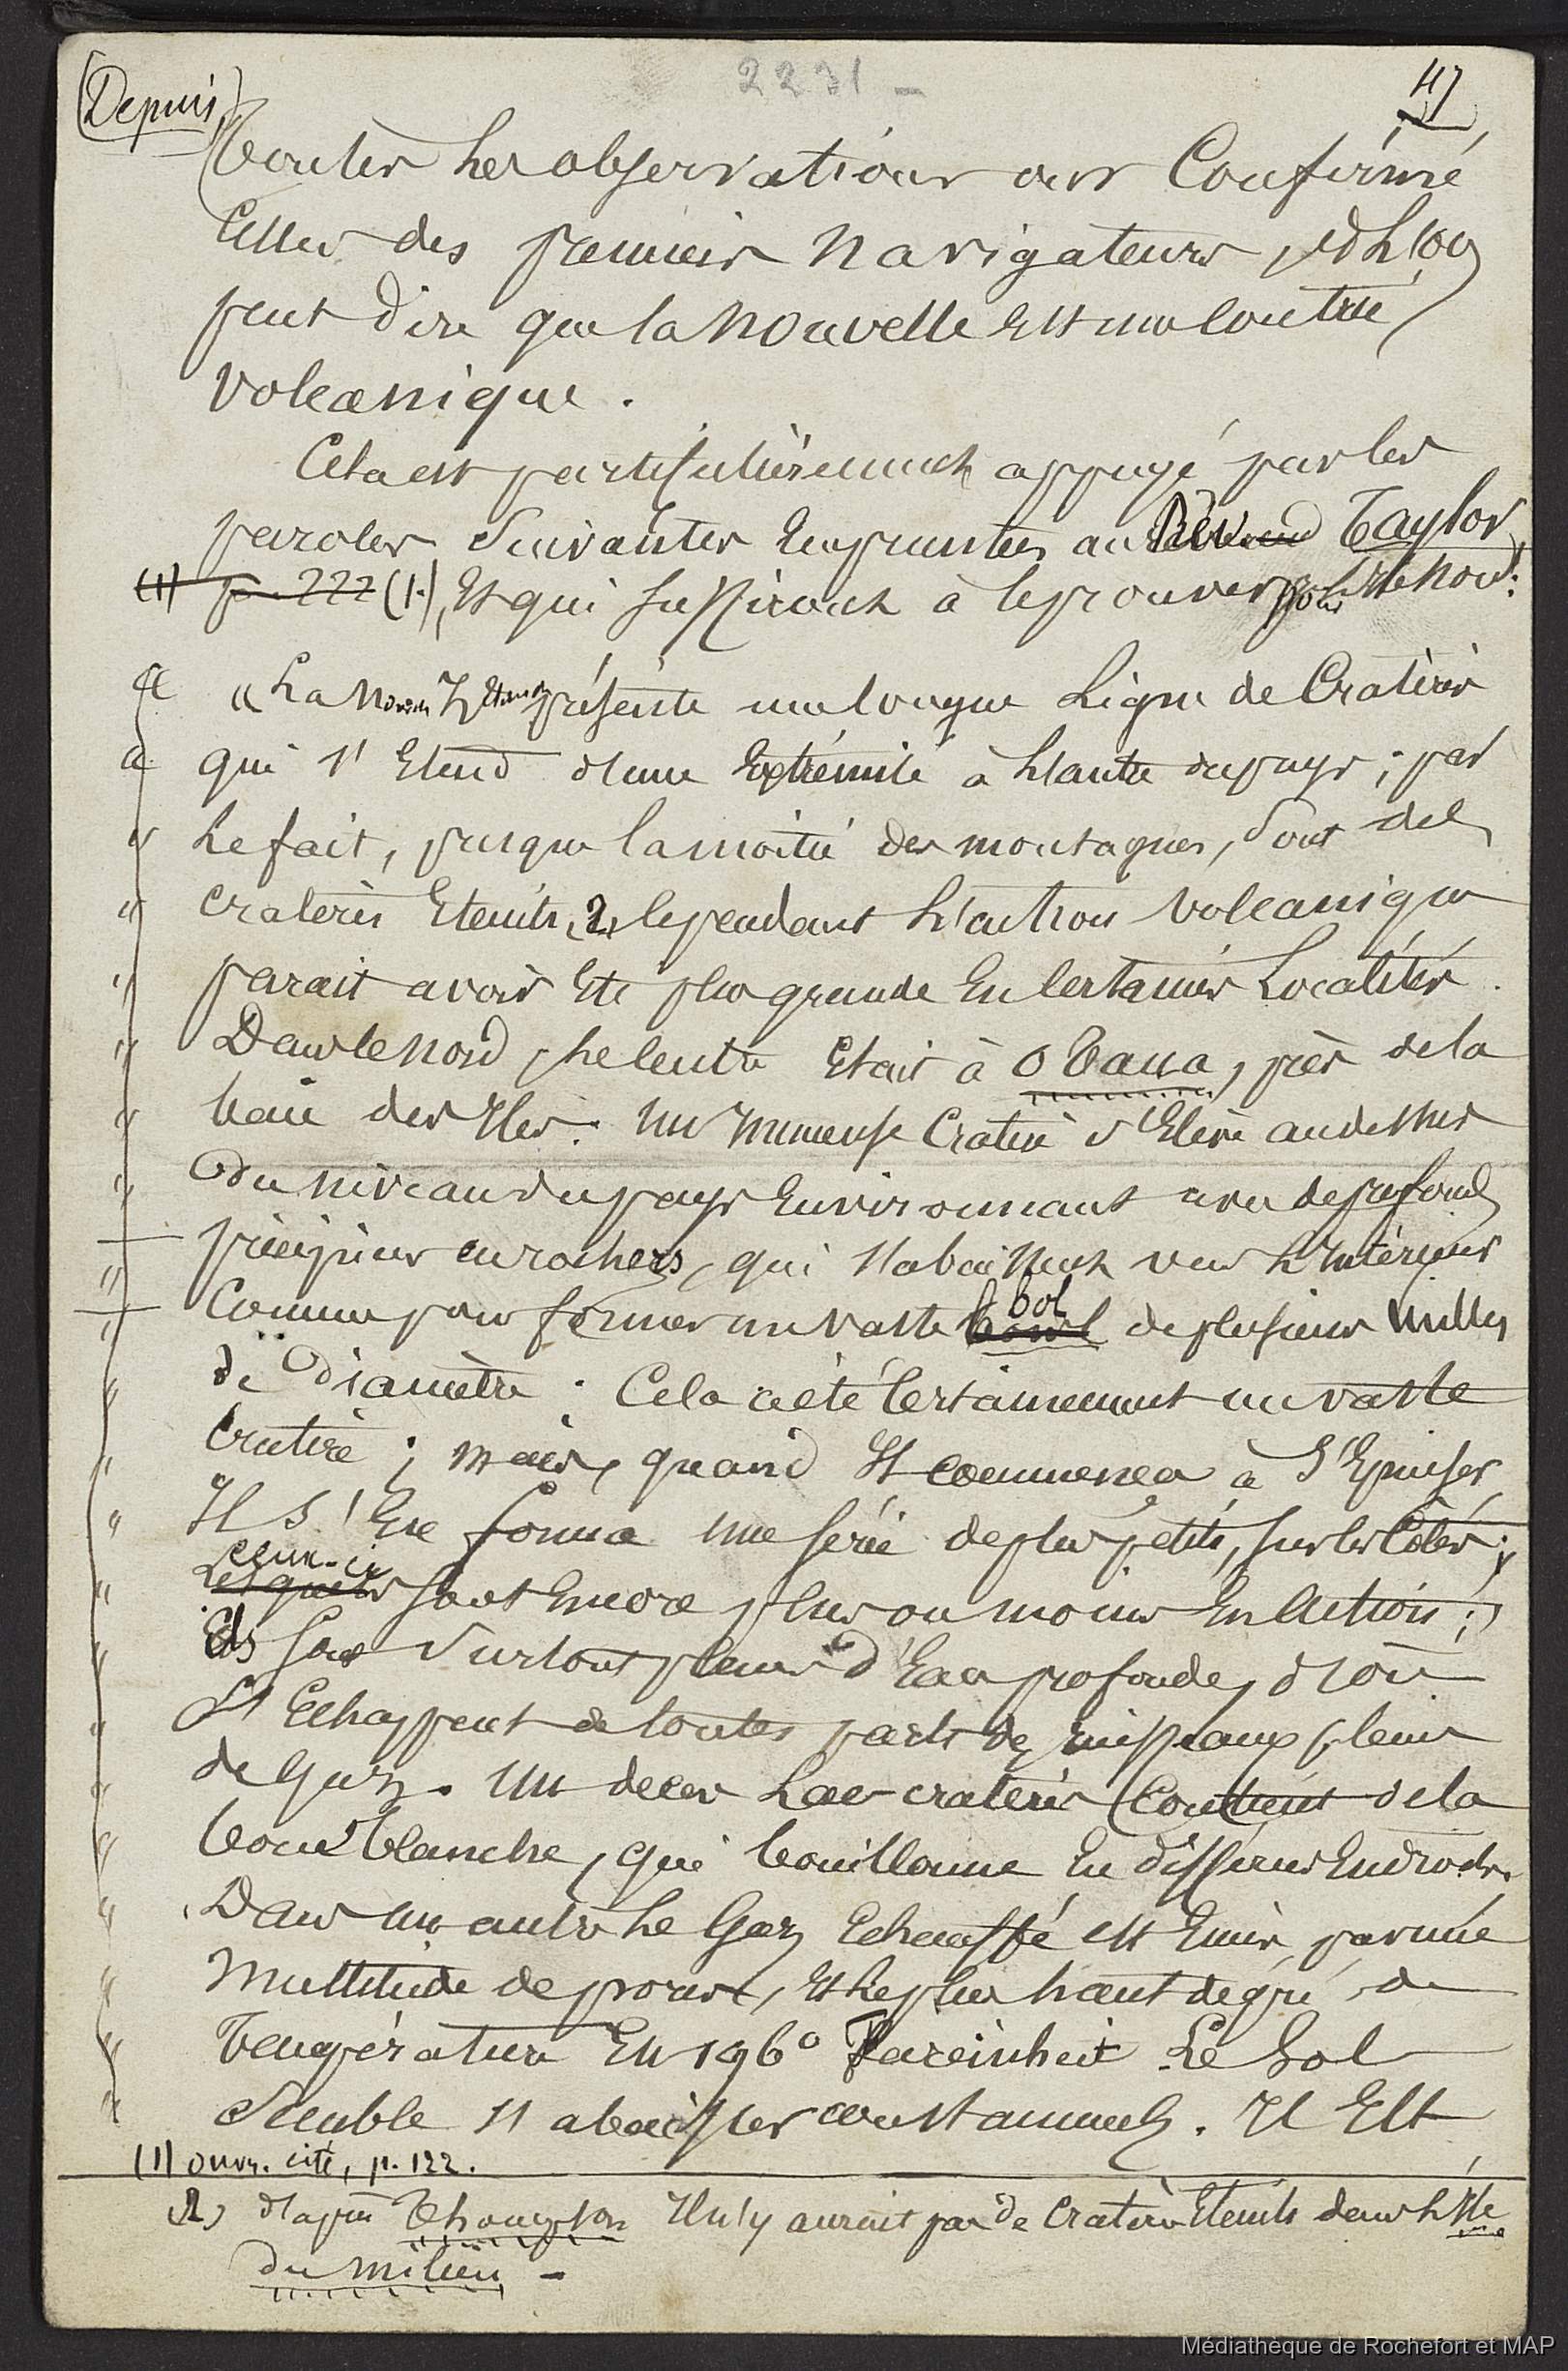 2231 -
47
(Depuis,
toutes les observations ont Confirmé
Celles des premiers Navigateurs, et l'on
peut dire que la Nouvelle Est une Contrée
Volcanique.
Cela est particulièrement appuyé par les
paroles Suivantes Empruntées au Taylor,
(1) p. 222 (1.), Et qui suffiront à le prouver pour l'Ile Nord:
"La Nouvelle Zélande présente une longue Ligne de Cratères
qui s'Etend d'une Extrémité à L'autre du pays; par
Le fait, presque la moitié des montagnes, Sont des
cratères Eteints, (2) Cependant L'action Volcanique
parait avoir Eté plus grande En Certaines Localités.
Dans le Nord, Le Centre Etait à Otaua, près de la
baie des Iles: un immense Cratère s'Elève au dessus
du niveau du pays Environnant avec de profonds
précipices en rochers, qui s'abaissent vers L'intérieur
Comme pour former un vaste bowl bol de plusieurs Milles
de Diamètre. Cela a été Certainement un vaste
Cratère; mais, quand Il commença à S'Epuiser,
Il S'En forma une série de plus petits, sur les Côtés;
Lesquels ceux-ci sont Encore plus ou moins En Action;
Ils sont Surtout pleins d'Eau profonde, d'où
S'Echappent de toutes parts des ruisseaux pleins
de Gaz. Un de ces Lacs-cratères Contient de la
boue blanche, qui bouillonne En différens Endroits.
Dans un autre Le Gaz Echauffé est Emis par une
Multitude de pores, Et le plus haut degré de
Température Est 196° Fareinheit. Le Sol
Semble s'abaisser constamment. Il Est
(1) ouvr. cité, p. 122.
(2) d'après Thompson Il n'y aurait pas de Cratères Eteints dans L'Ile
du milieu -
Médiathèque de Rochefort et MAP